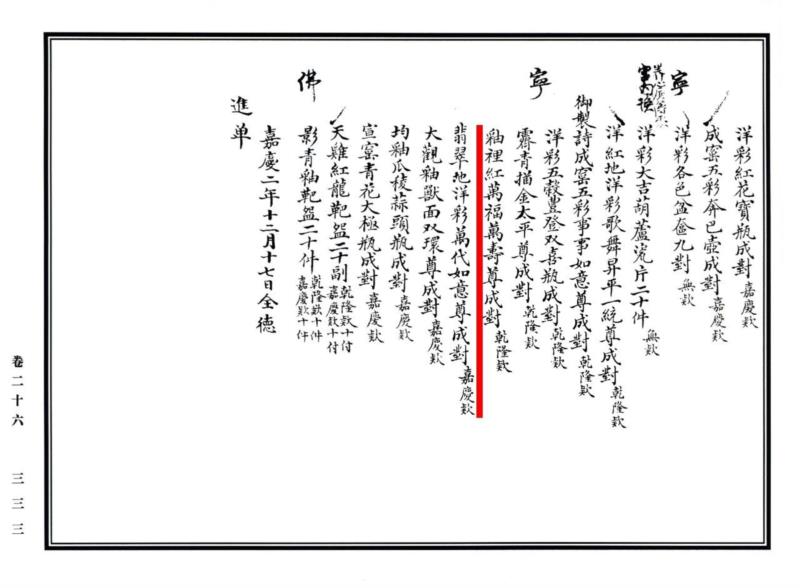 洋彩紅花寶瓶成對嘉慶欵
寧
成窯五彩奔巴壺成對嘉慶欵
洋彩各色盆奩九對無欵
洋彩大吉葫蘆流片二十件無欵
洋紅地洋彩歌舞昇平一統尊成對乾隆欵
御製詩成窯五彩事事如意尊成對乾隆欵
寧
洋彩五穀豐登双喜瓶成對乾隆欵
霽青描金太平尊成對乾隆欵
釉裡紅萬福萬壽尊成對乾隆欵
翡翠地洋彩萬代如意尊成對嘉慶欵
大觀釉獸面双環尊成對嘉慶欵
均釉瓜稜蒜頭瓶成對嘉慶欵
宣窯青花大極瓶成對嘉慶欵
佛
天雞紅龍靶盌二十副乾隆欵十付嘉慶欵十付
影青釉靶盌二十件乾隆欵十件嘉慶欵十件
嘉慶二年十二月十七日全德
進单
卷二十六
三三三